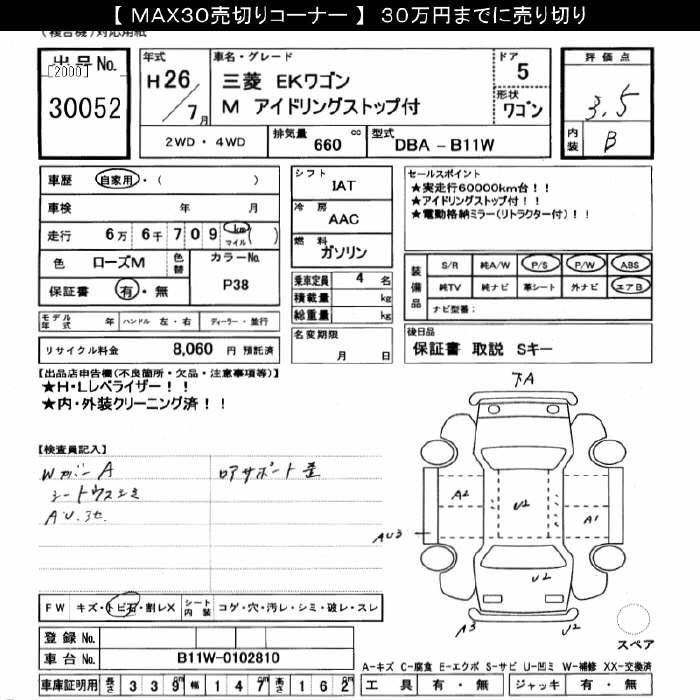 【 MAX30売切りコーナー 】 30万円までに売り切り
(複合機)対応用紙
出品No.
[2000]
30052
年式
H26/7月
車名・グレード
三菱 EKワゴン
M アイドリングストップ付
ドア
5
形状
ワゴン
評価点
3.5
内装
B
2WD・4WD
排気量 660 cc
型式 DBA－B11W
車歴 自家用・( )
車検 年 月
走行 6万 6千 7 0 9 km マイル ( )
色 ローズM 色替 カラーNo.
P38
保証書 有・無
シフト
IAT
冷房
AAC
燃料
ガソリン
セールスポイント
★実走行60000km台！！
★アイドリングストップ付！！
★電動格納ミラー(リトラクター付)！！
乗車定員 4 名
積載量 kg
総重量 kg
装備品
S/R 純A/W P/S P/W ABS
純TV 純ナビ 革シート 外ナビ エアB
ナビ型番：
モデル年式 年 ハンドル 左・右 ディーラー・並行
名変期限
月 日
後日品
保証書 取説 Sキー
リサイクル料金 8,060 円 預託済
【出品店申告欄(不良箇所・欠品・注意事項等)】
★H・Lレベライザー！！
★内・外装クリーニング済！！
下A
【検査員記入】
Wカバー A
ロアサポート歪
シートウスシミ
AU.3セ
A2
U2
A1
AU3
U2
A3
U2
FW キズ・トビ石・割レX シート内装 コゲ・穴・汚レ・シミ・破レ・スレ
スペア
登録No.
車台No. B11W-0102810
A－キズ C－腐食 E－エクボ S－サビ U－凹ミ W－補修 XX－交換済
車庫証明用 長さ 339cm 幅 147cm 高さ 162cm
工具 有・無 ジャッキ 有・無